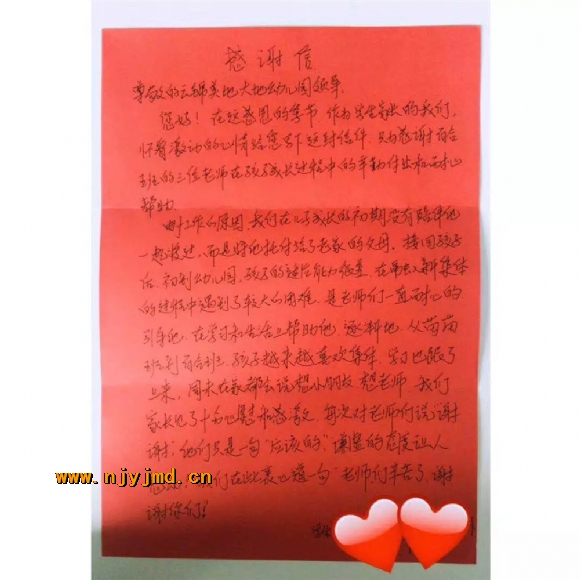 感谢信
尊敬的云锦美地大地幼儿园领导：
您好！在这感恩的季节 作为学生家长的我们，
怀着激动的心情给您写下这封信件，只为感谢百合
班的三位老师在孩子成长过程中的辛勤付出和耐心
帮助。
由于工作的原因，我们在儿子成长的初期没有陪伴他
一起渡过，而是将他托付给了老家的父母，接回孩子
后 初到幼儿园，孩子的适应能力很差，在融入新集体
的过程中遇到了较大的困难，是老师们一直耐心的
引导他，在学习和生活上帮助他 逐渐地，从苗苗
班到百合班 孩子越来越喜欢集体，学习也跟了
上来，周末在家都会说想小朋友 想老师，我们
家长也十分心慰和感激，每次对老师们说"谢
谢"，他们只是一句"应该的"，谦虚的态度让人
我们在此衷心道一句"老师们辛苦了，谢
谢你们！
www.njyjmd.cn